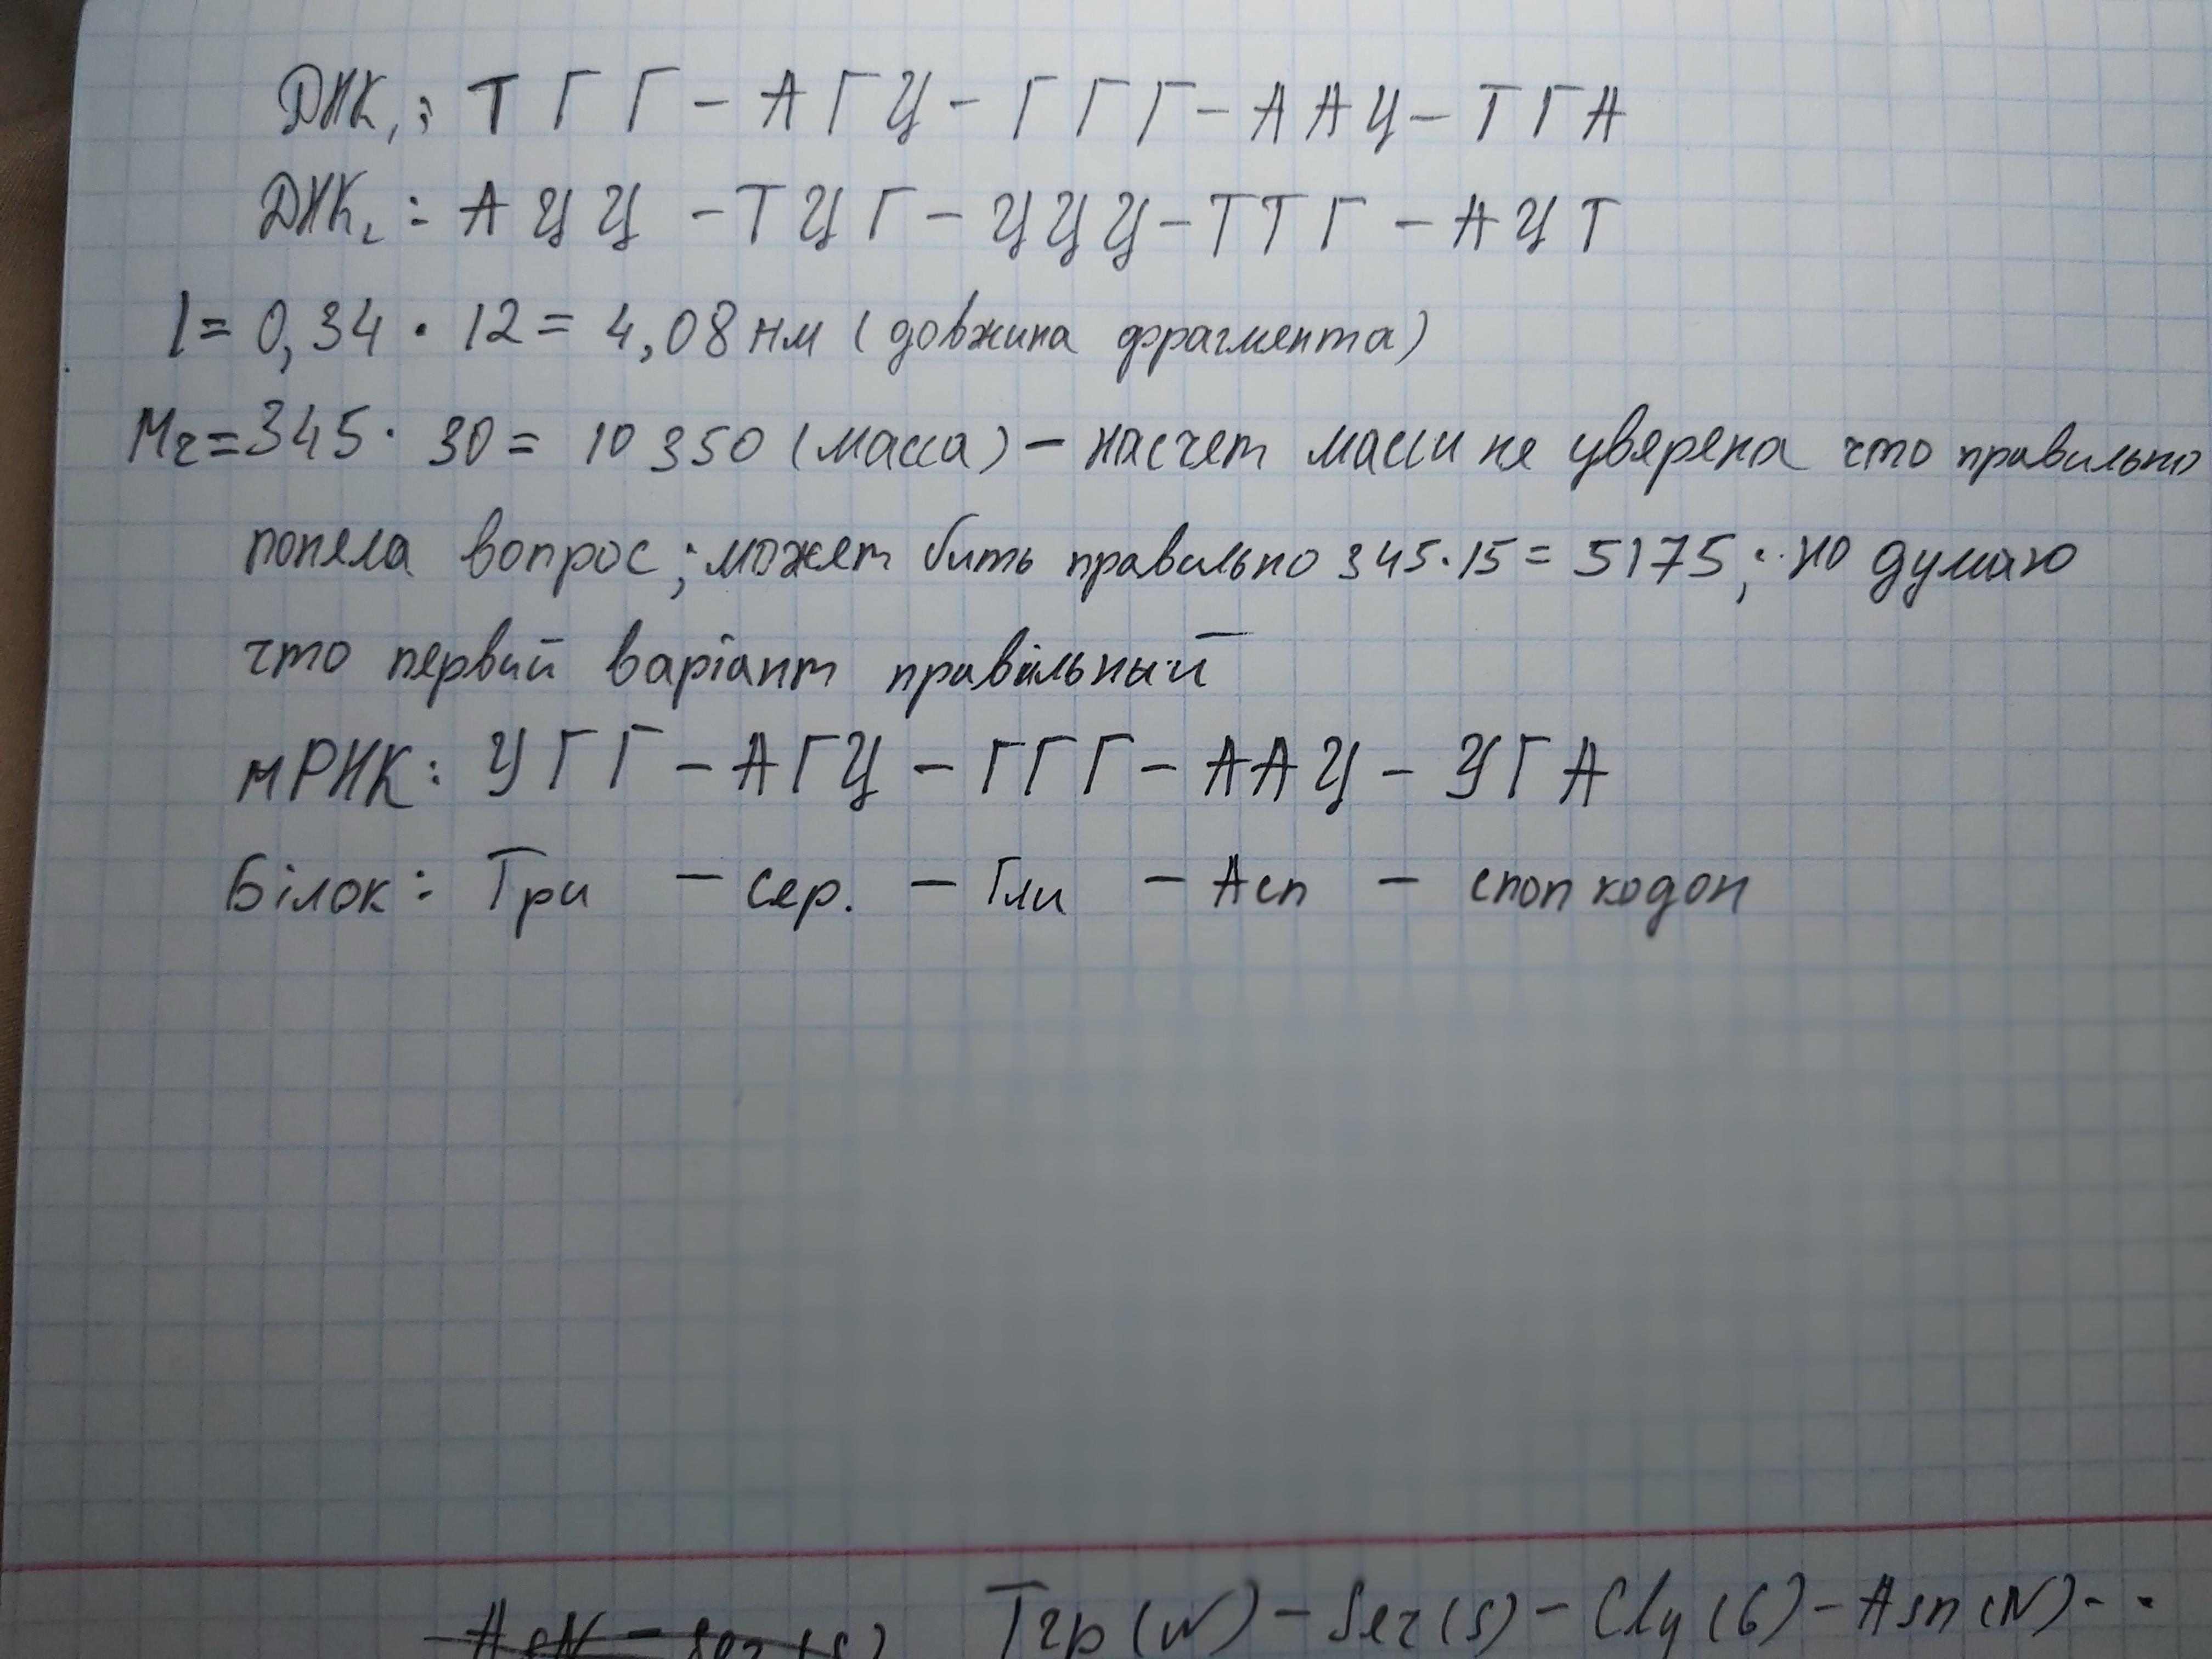 ДНК₁: ТГГ – АГЦ – ГГГ – ААЦ – ТГА
ДНК₂: АЦЦ – ТЦГ – ЦЦЦ – ТТГ – АЦТ
l = 0,34 · 12 = 4,08 нм (довжина фрагмента)
Mr = 345 · 30 = 10 350 (масса) – насчет масси не уверена что правильно
поняла вопрос; может бить правильно 345 · 15 = 5175; но думаю
что первий варіант правильный
мРНК: УГГ – АГЦ – ГГГ – ААЦ – УГА
Білок: Три – сер. – Гли – Асп – стоп кодон
Trp (W) – Ser (S) – Gly (G) – Asn (N) - -